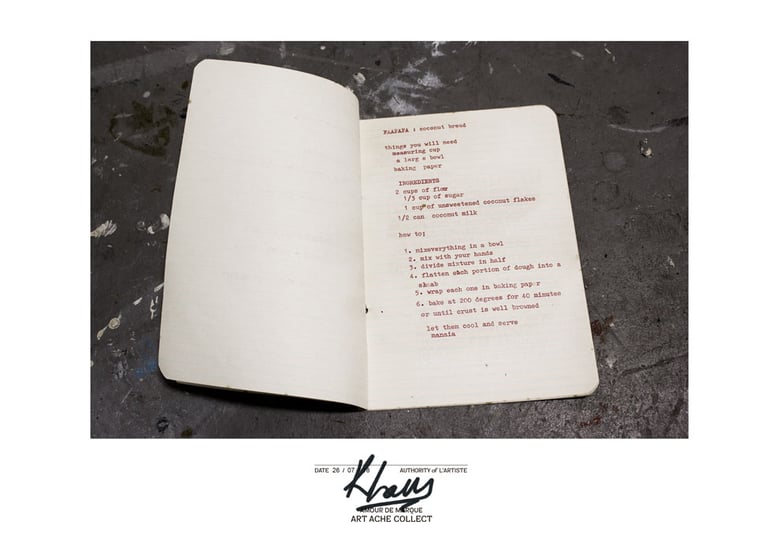 FAAPAPA : coconut bread
things you will need
measuring cup
a larg e bowl
baking paper
INGREDIENTS
2 cups of flow
1/3 cup of sugar
1 cup of unsweetened coconut flakes
1/2 can coconut milk
how to;
1. mixeverything in a bowl
2. mix with your hands
3. divide mixture in half
4. flatten each portion of dough into a
slaab
5. wrap each one in baking paper
6. bake at 200 degrees for 40 minutes
or until crust is well browned
let them cool and serve
mannia
DATE 26 / 07 6 AUTHORITY of L'ARTISTE
AMOUR DE MARQUE
ART ACHE COLLECT